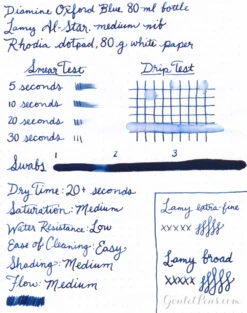 Diamine Oxford Blue 80 ml bottle
Lamy Al-Star medium nib
Rhodia dotpad, 80 g white paper
Smear Test
5 seconds
10 seconds
20 seconds
30 seconds
Drip Test
Swabs
1 2 3
Dry Time: 20+ seconds
Saturation: Medium
Water Resistance: Low
Ease of Cleaning: Easy
Shading: Medium
Flow: Medium
Lamy extra-fine
xxxxx
Lamy broad
xxxxx
GouletPens.com